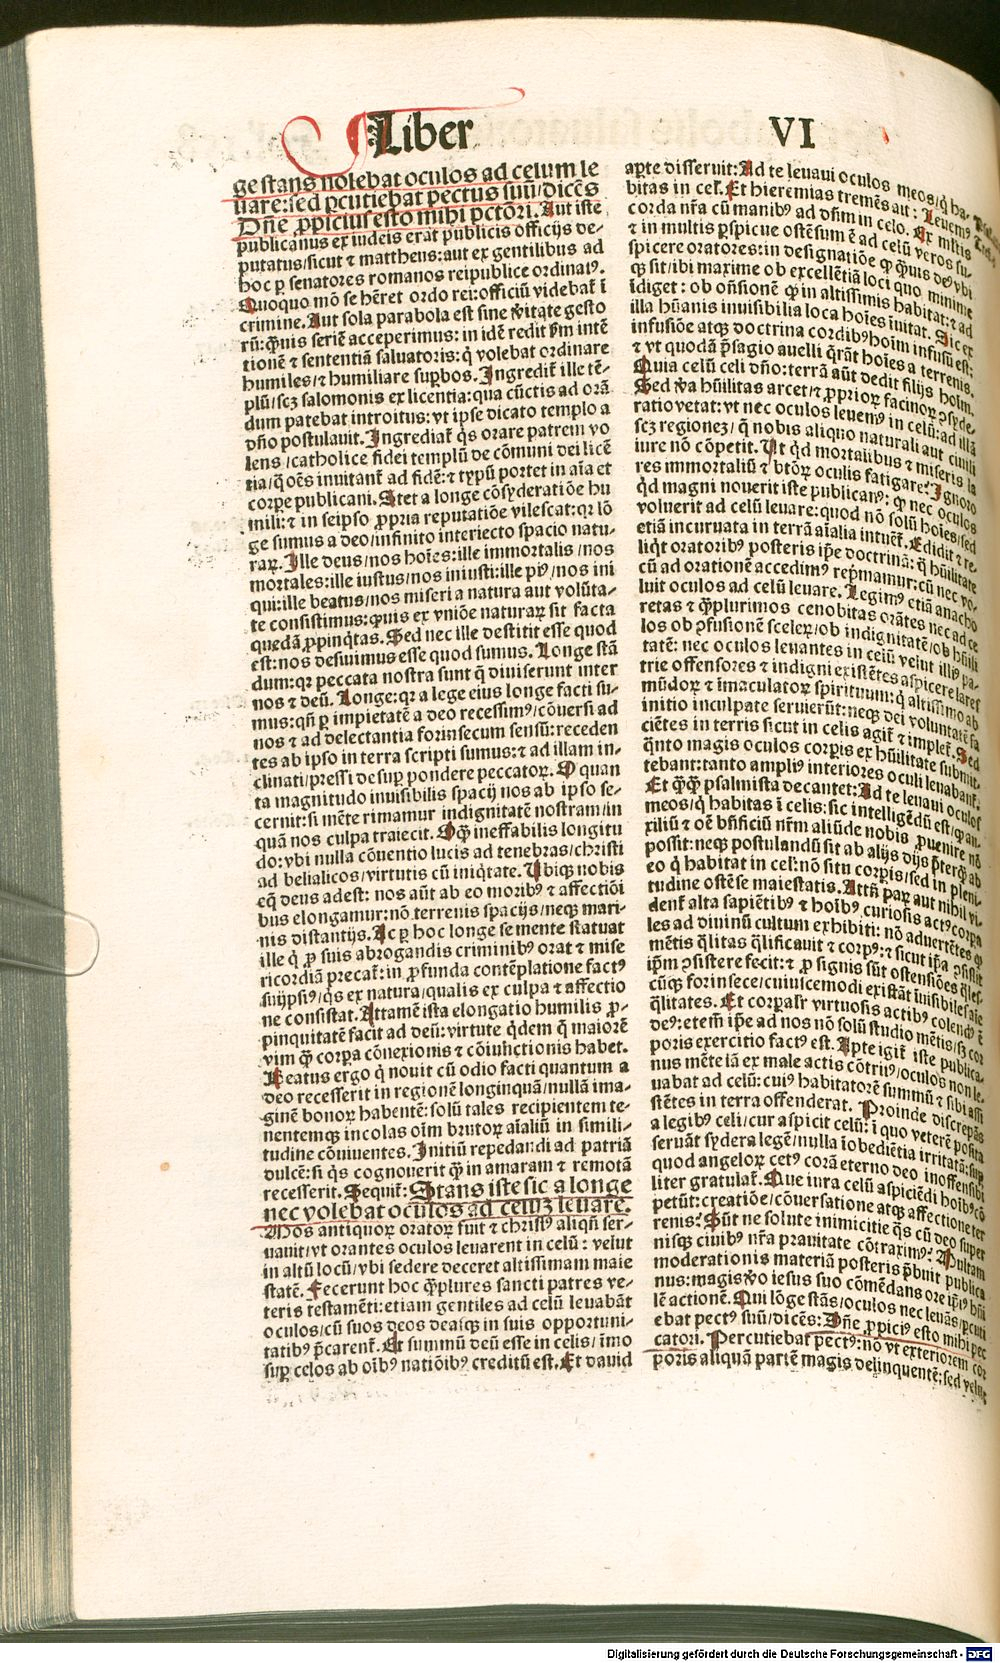 Liber VI
ge stans nolebat oculos ad celum le
uare: sed ꝑcutiebat pectus suū/dicēs
Dn̄e ꝓpicius esto mihi pctōri. Aut iste
publicanus ex iudeis erat publicis officijs de-
putatus/sicut ⁊ mattheus: aut ex gentilibus ad
hoc ꝑ senatores romanos reipublice ordinatꝰ.
Quoquo mō se hēret ordo rei: officiū videbat̄ ī
crimine. Aut sola parabola est sine v̓itate gesto
rū: q̄uis seriē acceperimus: in idē redit ẜm intē
tionē ⁊ sententiā saluatoris: q̇ volebat ordinare
humiles/⁊ humiliare suꝑbos. Ingredit̄ ille tē-
plū/scꝫ salomonis ex licentia: qua cūctis ad orā
dum patebat introitus: vt ipse dicato templo a
dn̄o postulauit. Ingrediat̄ q̇s orare patrem vo
lens/catholice fidei templū de cōmuni dei licē
tia/q̇ oēs inuitant̄ ad fidē: ⁊ tẏpū portet in aīa et
corꝑe publicani. Stet a longe cōsyderatiōe hu
mili: ⁊ in seipso ꝓpria reputatiōe vilescat: qꝛ lō
ge sumus a deo/infinito interiecto spacio natu-
raꝝ. Ille deus/nos hoīes: ille immortalis/nos
mortales: ille iustus/nos iniusti: ille piꝰ/nos ini
qui: ille beatus/nos miseri a natura aut volūta-
te consistimus: q̄uis ex vniōe naturaꝝ sit facta
quedā ꝓpinq̇tas. Sed nec ille destitit esse quod
est: nos desuimus esse quod sumus. Longe stā
dum: qꝛ peccata nostra sunt q̇ diuiserunt inter
nos ⁊ deū. Longe: qꝛ a lege eius longe facti su-
mus: qn̄ ꝑ impietatē a deo recessimꝰ/cōuersi ad
nos ⁊ ad delectantia forinsecum sensū: receden
tes ab ipso in terra scripti sumus: ⁊ ad illam in-
clinati/pressi desuꝑ pondere peccatoꝝ. O quan
ta magnitudo inuisibilis spacij nos ab ipso se-
cernit: si mēte rimamur indignitatē nostram/in
quā nos culpa traiecit. O q̄ ineffabilis longitu
do: vbi nulla cōuentio lucis ad tenebras/christi
ad belialicos/virtutis cū iniq̇tate. Ubiqꝫ nobis
eq̇ deus adest: nos aūt ab eo moribꝰ ⁊ affectiōi
bus elongamur: nō terrenis spacijs/neqꝫ mari-
nis distantijs. Ac ꝑ hoc longe se mente statuat
ille q̇ ꝓ suis abrogandis criminibꝰ orat ⁊ mise
ricordiā precat̄: in ꝓfunda contēplatione factꝰ
suijpsiꝰ/q̇s ex natura/qualis ex culpa ⁊ affectio
ne consistat. Attamē ista elongatio humilis ꝓ-
pinquitatē facit ad deū: virtute q̇dem q̇ maiorē
vim q̄ corpa cōnexionis ⁊ cōiunctionis habet.
Beatus ergo q̇ nouit cū odio facti quantum a
deo recesserit in regionē longinquā/nullā ima-
ginē bonoꝝ habentē: solū tales recipientem te-
nentemqꝫ incolas oīm brutoꝝ aīaliū in simili-
tudine cōuiuentes. Initiū repedandi ad patriā
dulcē: si q̇s cognouerit q̄ in amaram ⁊ remotā
recesserit. Sequit̄: Stans iste sic a longe
nec volebat oculos ad celuꝫ leuare.
Mos antiquoꝝ oratoꝝ fuit ⁊ christꝰ aliqn̄ ser-
uauit/vt orantes oculos leuarent in celū: velut
in altū locū/vbi sedere deceret altissimam maie
statē. Fecerunt hoc q̄plures sancti patres ve-
teris testamēti: etiam gentiles ad celū leuabāt
oculos/cū suos deos deasqꝫ in suis opportuni-
tatibꝰ p̄carent̄. Et summū deū esse in celis/īmo
suꝑ celos ab oībꝰ natiōibꝰ creditū est. Et dauid
aꝑte disseruit: Ad te leuaui oculos meos/q̇ ha-
bitas in cel̄. Et hieremias tremēs ait: Leuemꝰ
corda nr̄a cū manibꝰ ad dn̄m in celo. Ex mltis
⁊ in multis ꝑspicue ostēsum ē ad celū veros su-
spicere oratores: in designatiōe ꝙ q̄uis deꝰ vbi
qꝫ sit/ibi maxime ob excellētiā loci quo minime
īdiget: ob on̄sionē ꝙ in altissimis habitat: ⁊ ad
illa hūanis inuisibilia loca hoīes īuitat. Sic ex
infusiōe atqꝫ doctrina cordibꝰ hoīm infusū est:
⁊ vt quodā p̄sagio auelli q̄rāt hoīes a terrenis.
Quia celū celi dn̄o: terrā aūt dedit filijs hoīm.
Sed v̓a hūilitas arcet/⁊ ꝓprioꝝ facinoꝝ ꝯsyde-
ratio vetat: vt nec oculos leuemꝰ in celū: ad illā
scꝫ regionez/q̇ nobis aliquo naturali aut ciuili
iure nō cōpetit. Ut q̇d mortalibus ⁊ miseris la
res immortaliū ⁊ btōꝝ oculis fatigare? Ignoro
q̇d magni nouerit iste publicanꝰ: ꝙ nec oculos
voluerit ad celū leuare: quod nō solū hoīes/sed
etiā incuruata in terrā aīalia intuēt̄. Edidit ⁊ re-
liq̇t oratoribꝰ posteris ip̄e doctrinā: q̇ hūilitate
cū ad orationē accedimꝰ rep̄mamur: cū nec vo-
luit oculos ad celū leuare. Legimꝰ etiā anacho
retas ⁊ q̄plurimos cenobitas orātes nec ad ce
los ob ꝯfusionē sceleꝝ/ob indignitatē/ob hūili
tatē: nec oculos leuantes in celū velut illiꝰ pa-
trie offensores ⁊ indigni existētes aspicere lares
mūdoꝝ ⁊ īmaculatoꝝ spirituum: q̇ altissimo ab
initio inculpate seruierūt: neqꝫ dei voluntatē fa
ciētes in terris sicut in celis agit̄ ⁊ implet̄. Sed
q̇nto magis oculos corꝑis ex hūilitate submit-
tebant: tanto ampliꝰ interiores oculi leuabant̄.
Et q̄q̄ psalmista decantet: Ad te leuaui oculos
meos/q̇ habitas ī celis: sic intelligēdū est/ꝙ au-
xiliū ⁊ oē bn̄ficiū nr̄m aliūde nobis ꝓuenire nō
possit: neqꝫ postulandū sit ab alijs dijs p̄terq̄ ab
eo q̇ habitat in cel̄: nō situ corꝑis/sed in pleni-
tudine ostēse maiestatis. Attn̄ paꝝ aut nihil vi-
dent̄ alta sapiētibꝰ ⁊ hoībꝰ curiosis actꝰ corpa
les ad diuinū cultum exhibiti: nō aduertētes ꝙ
mētis q̇litas q̇lificauit ⁊ corpꝰ: ⁊ sicut ip̄a ꝯsistit
ip̄m ꝯsistere fecit: ⁊ ꝓ signis sūt ostensiōes q̇les-
cūqꝫ forinsece/cuiuscemodi existāt īuisibiles aīe
q̇litates. Et corꝑalr̄ virtuosis actibꝰ colendꝰ ē
deꝰ: eteni ip̄e ad nos nō solū studio mētis/sꝫ cor
poris exercitio factꝰ est. Apte igit̄ iste publica-
nus mēte iā ex male actis cōtritꝰ/oculos non le-
uabat ad celū: cuiꝰ habitatorē summū ⁊ sibi assi
stētes in terra offenderat. Proinde discrepās
a legibꝰ celi/cur aspicit celū: ī quo veterē posita
seruāt sydera legē/nulla īobediētia irritatā: suꝑ
quod angeloꝝ cetꝰ corā eterno deo inoffensibi
liter gratulat̄. Que iura celū aspiciēdi hoibꝰ cō
petūt: creatiōe/cōuersatione atqꝫ affectione ter
renis? Sūt ne solute inimicitie q̇s cū deo super
nisqꝫ ciuibꝰ nr̄a prauitate cōtraximꝰ? Multam
moderationis materiā posteris p̄buit publica
nus: magis v̓o iesus suo cōmēdans ore ip̄iꝰ hūi
lē actionē. Qui lōge stās/oculos nec leuās/ꝑcuti
ebat pectꝰ suū/dicēs: Dn̄e ꝓpiciꝰ esto mihi pec
catori. Percutiebat pectꝰ: nō vt exteriorem cor
poris aliquā partē magis delinquentē: sed velut
Digitalisierung gefördert durch die Deutsche Forschungsgemeinschaft - DFG